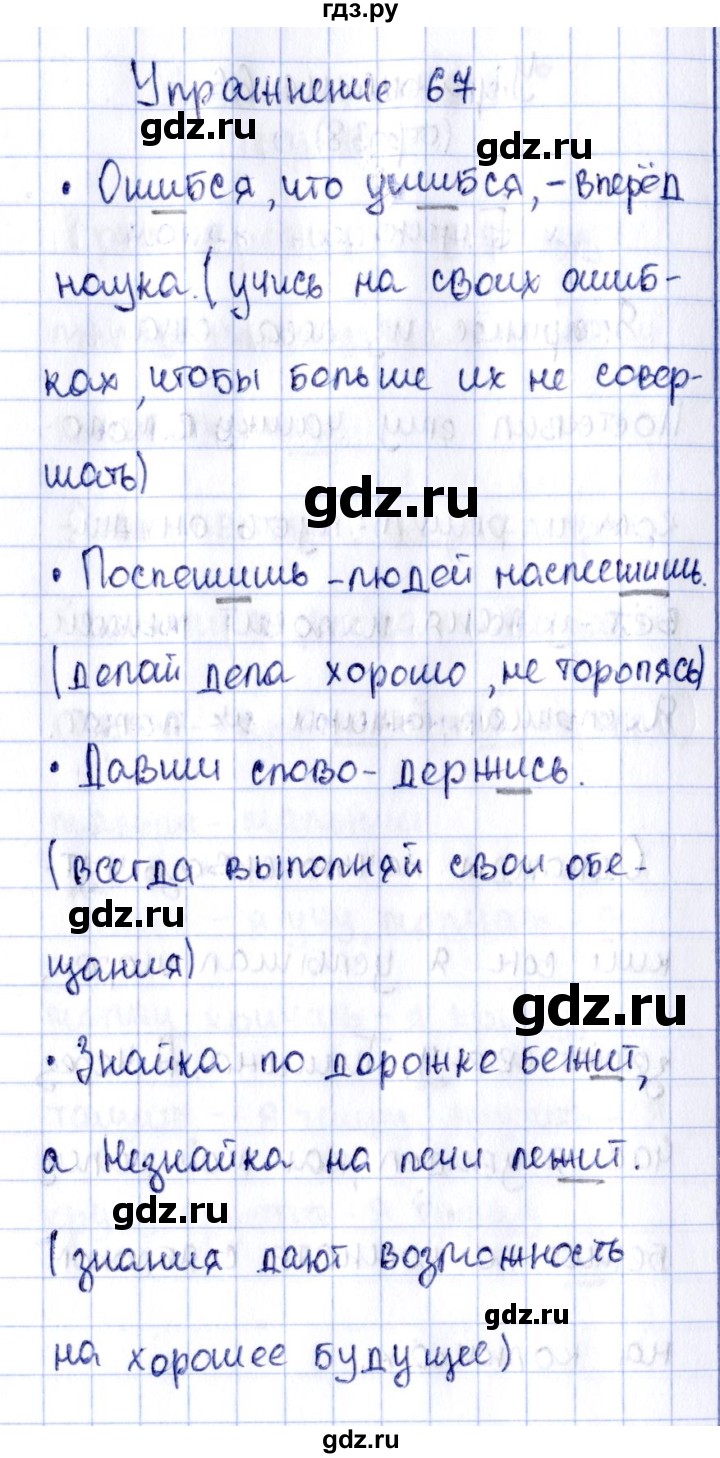 гдз.ру
Упражнение 67
gdz.ru
gdz.ru
• Ошибся, что ушибся, - вперёд
наука. (учись на своих ошиб-
ках, чтобы больше их не совер-
шать)
gdz.ru
• Поспешишь - людей насмешишь.
(делай дела хорошо, не торопясь)
• Давши слово - держись.
(всегда выполняй свои обе-
gdz.ru
щания)
gdz.ru
• Знайка по дорожке бежит,
а Незнайка на печи лежит.
gdz.ru
(знания дают возможность
gdz.ru
на хорошее будущее)
gdz.ru